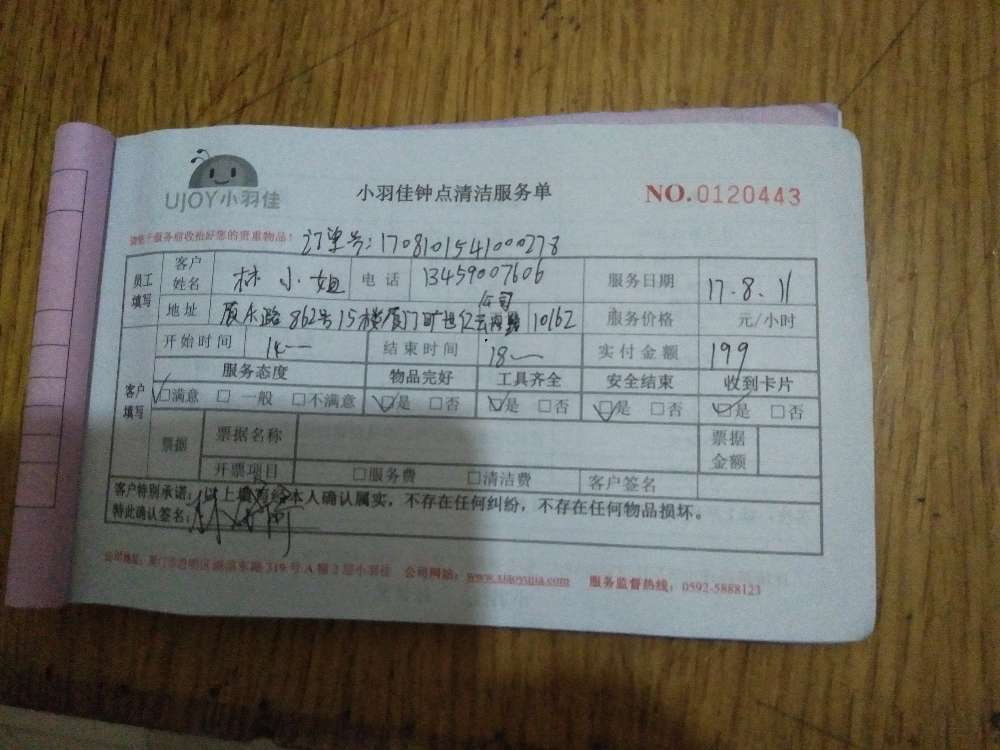 UJOY小羽佳
小羽佳钟点清洁服务单
NO.0120443
请您于服务前收拾好您的贵重物品!
订单号:1708101541000278
员工填写 客户姓名 林小姐 电话 13459007606 服务日期 17.8.11
公司
地址 厦禾路862号15楼厦门 10162 服务价格 元/小时
开始时间 14— 结束时间 18— 实付金额 199
服务态度 物品完好 工具齐全 安全结束 收到卡片
客户填写 ☑满意 □一般 □不满意 ☑是 □否 ☑是 □否 ☑是 □否 ☑是 □否
票据 票据名称 票据金额
开票项目 □服务费 □清洁费 客户签名
客户特别承诺:以上填写经本人确认属实,不存在任何纠纷,不存在任何物品损坏。
特此确认签名:
公司地址:厦门市思明区湖滨东路319号A幢2层小羽佳 公司网站:www.xiaoyujia.com 服务监督热线:0592-5888123